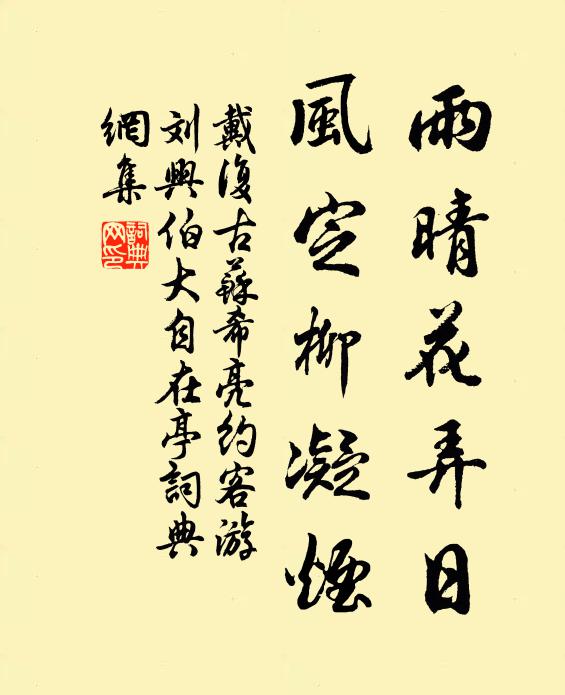 雨晴花弄日
風定柳凝煙
戴復古蘇希亮約客游
刘興伯大自在亭詞典
網集
詞典網印